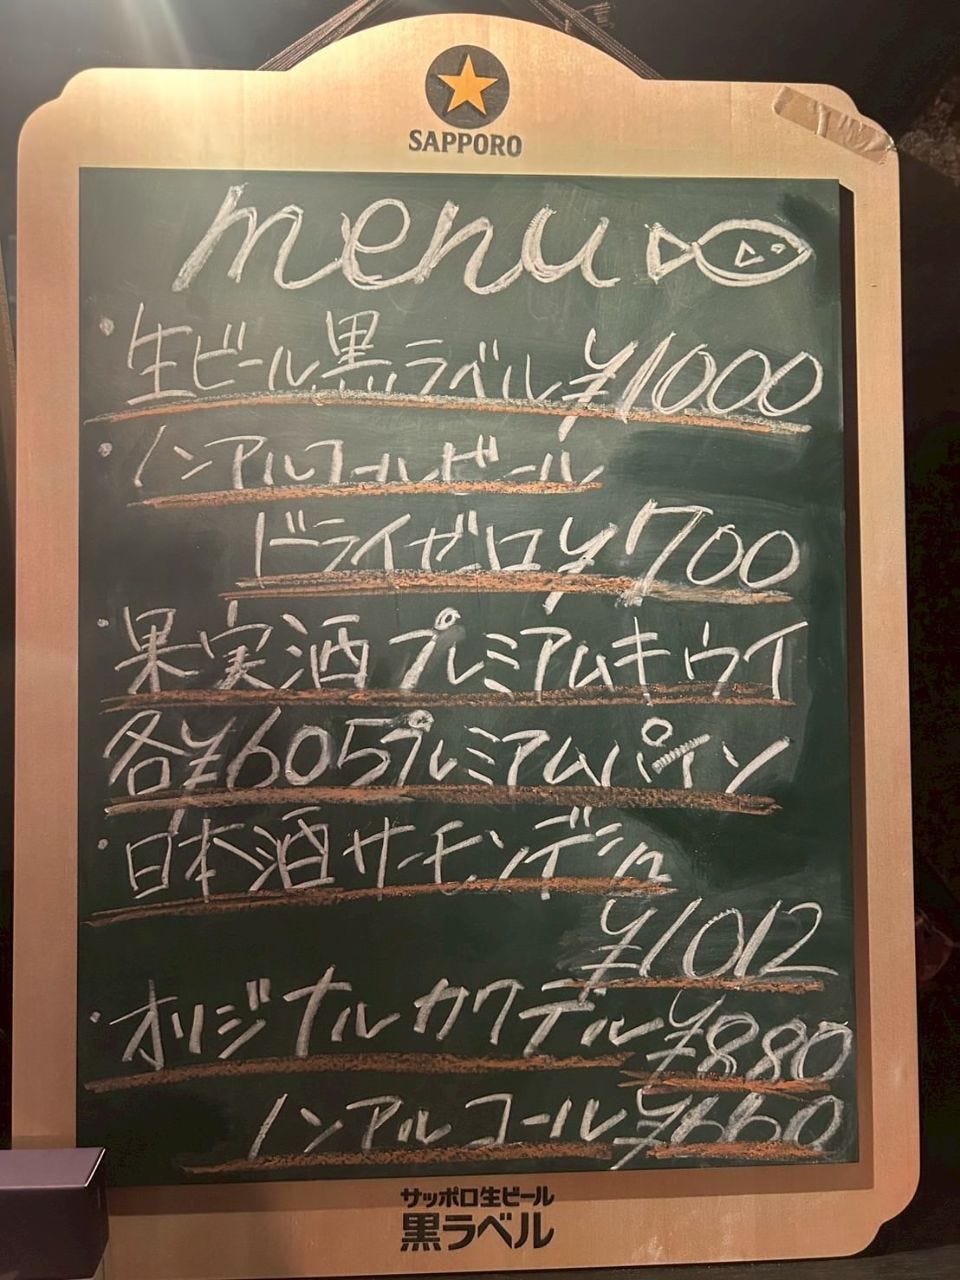 SAPPORO
menu
・生ビール黒ラベル¥1000
・ノンアルコールビール
ドライゼロ¥700
・果実酒プレミアムキウイ
各¥605プレミアムパイン
・日本酒サーモンデシュ
¥1012
・オリジナルカクテル¥880
ノンアルコール¥660
サッポロ生ビール
黒ラベル